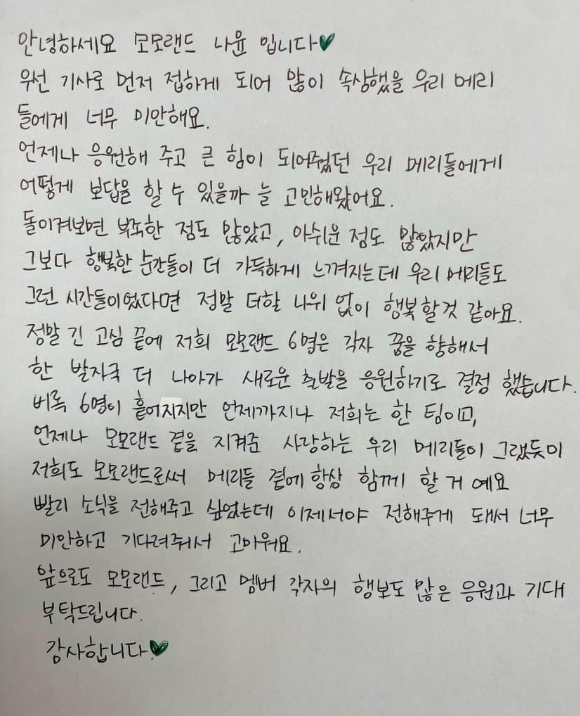 안녕하세요 모모랜드 나윤 입니다💚
우선 기사로 먼저 접하게 되어 많이 속상했을 우리 메리
들에게 너무 미안해요.
언제나 응원해 주고 큰 힘이 되어줬던 우리 메리들에게
어떻게 보답을 할 수 있을까 늘 고민해왔어요.
돌이켜보면 부족한 점도 많았고, 아쉬운 점도 많았지만
그보다 행복한 순간들이 더 가득하게 느껴지는데 우리 메리들도
그런 시간들이었다면 정말 더할 나위 없이 행복할것 같아요.
정말 긴 고심 끝에 저희 모모랜드 6명은 각자 꿈을 향해서
한 발자국 더 나아가 새로운 출발을 응원하기로 결정 했습니다.
비록 6명이 흩어지지만 언제까지나 저희는 한 팀이고,
언제나 모모랜드 곁을 지켜준 사랑하는 우리 메리들이 그랬듯이
저희도 모모랜드로써 메리들 곁에 항상 함께 할 거 예요
빨리 소식을 전해주고 싶었는데 이제서야 전해주게 돼서 너무
미안하고 기다려줘서 고마워요.
앞으로도 모모랜드, 그리고 멤버 각자의 행보도 많은 응원과 기대
부탁드립니다.
감사합니다💚